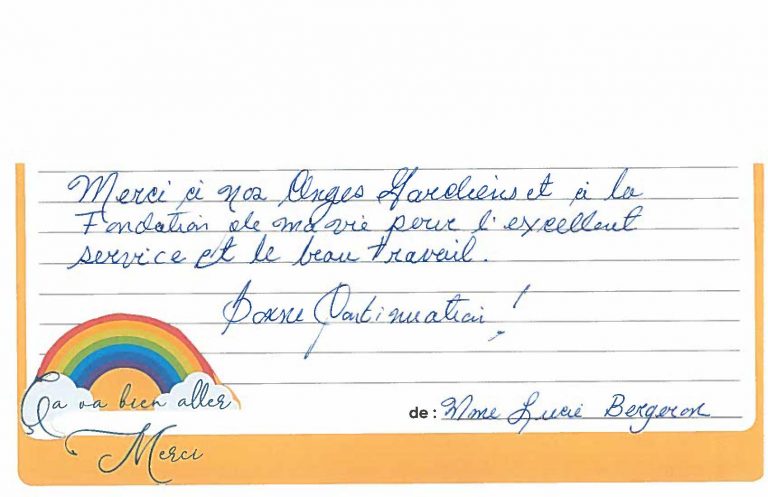 Merci à nos Anges Gardiens et à la
Fondation de ma vie pour l'excellent
service et le beau travail.
Bonne Continuation !
Ça va bien aller
Merci
de : Mme Lucie Bergeron